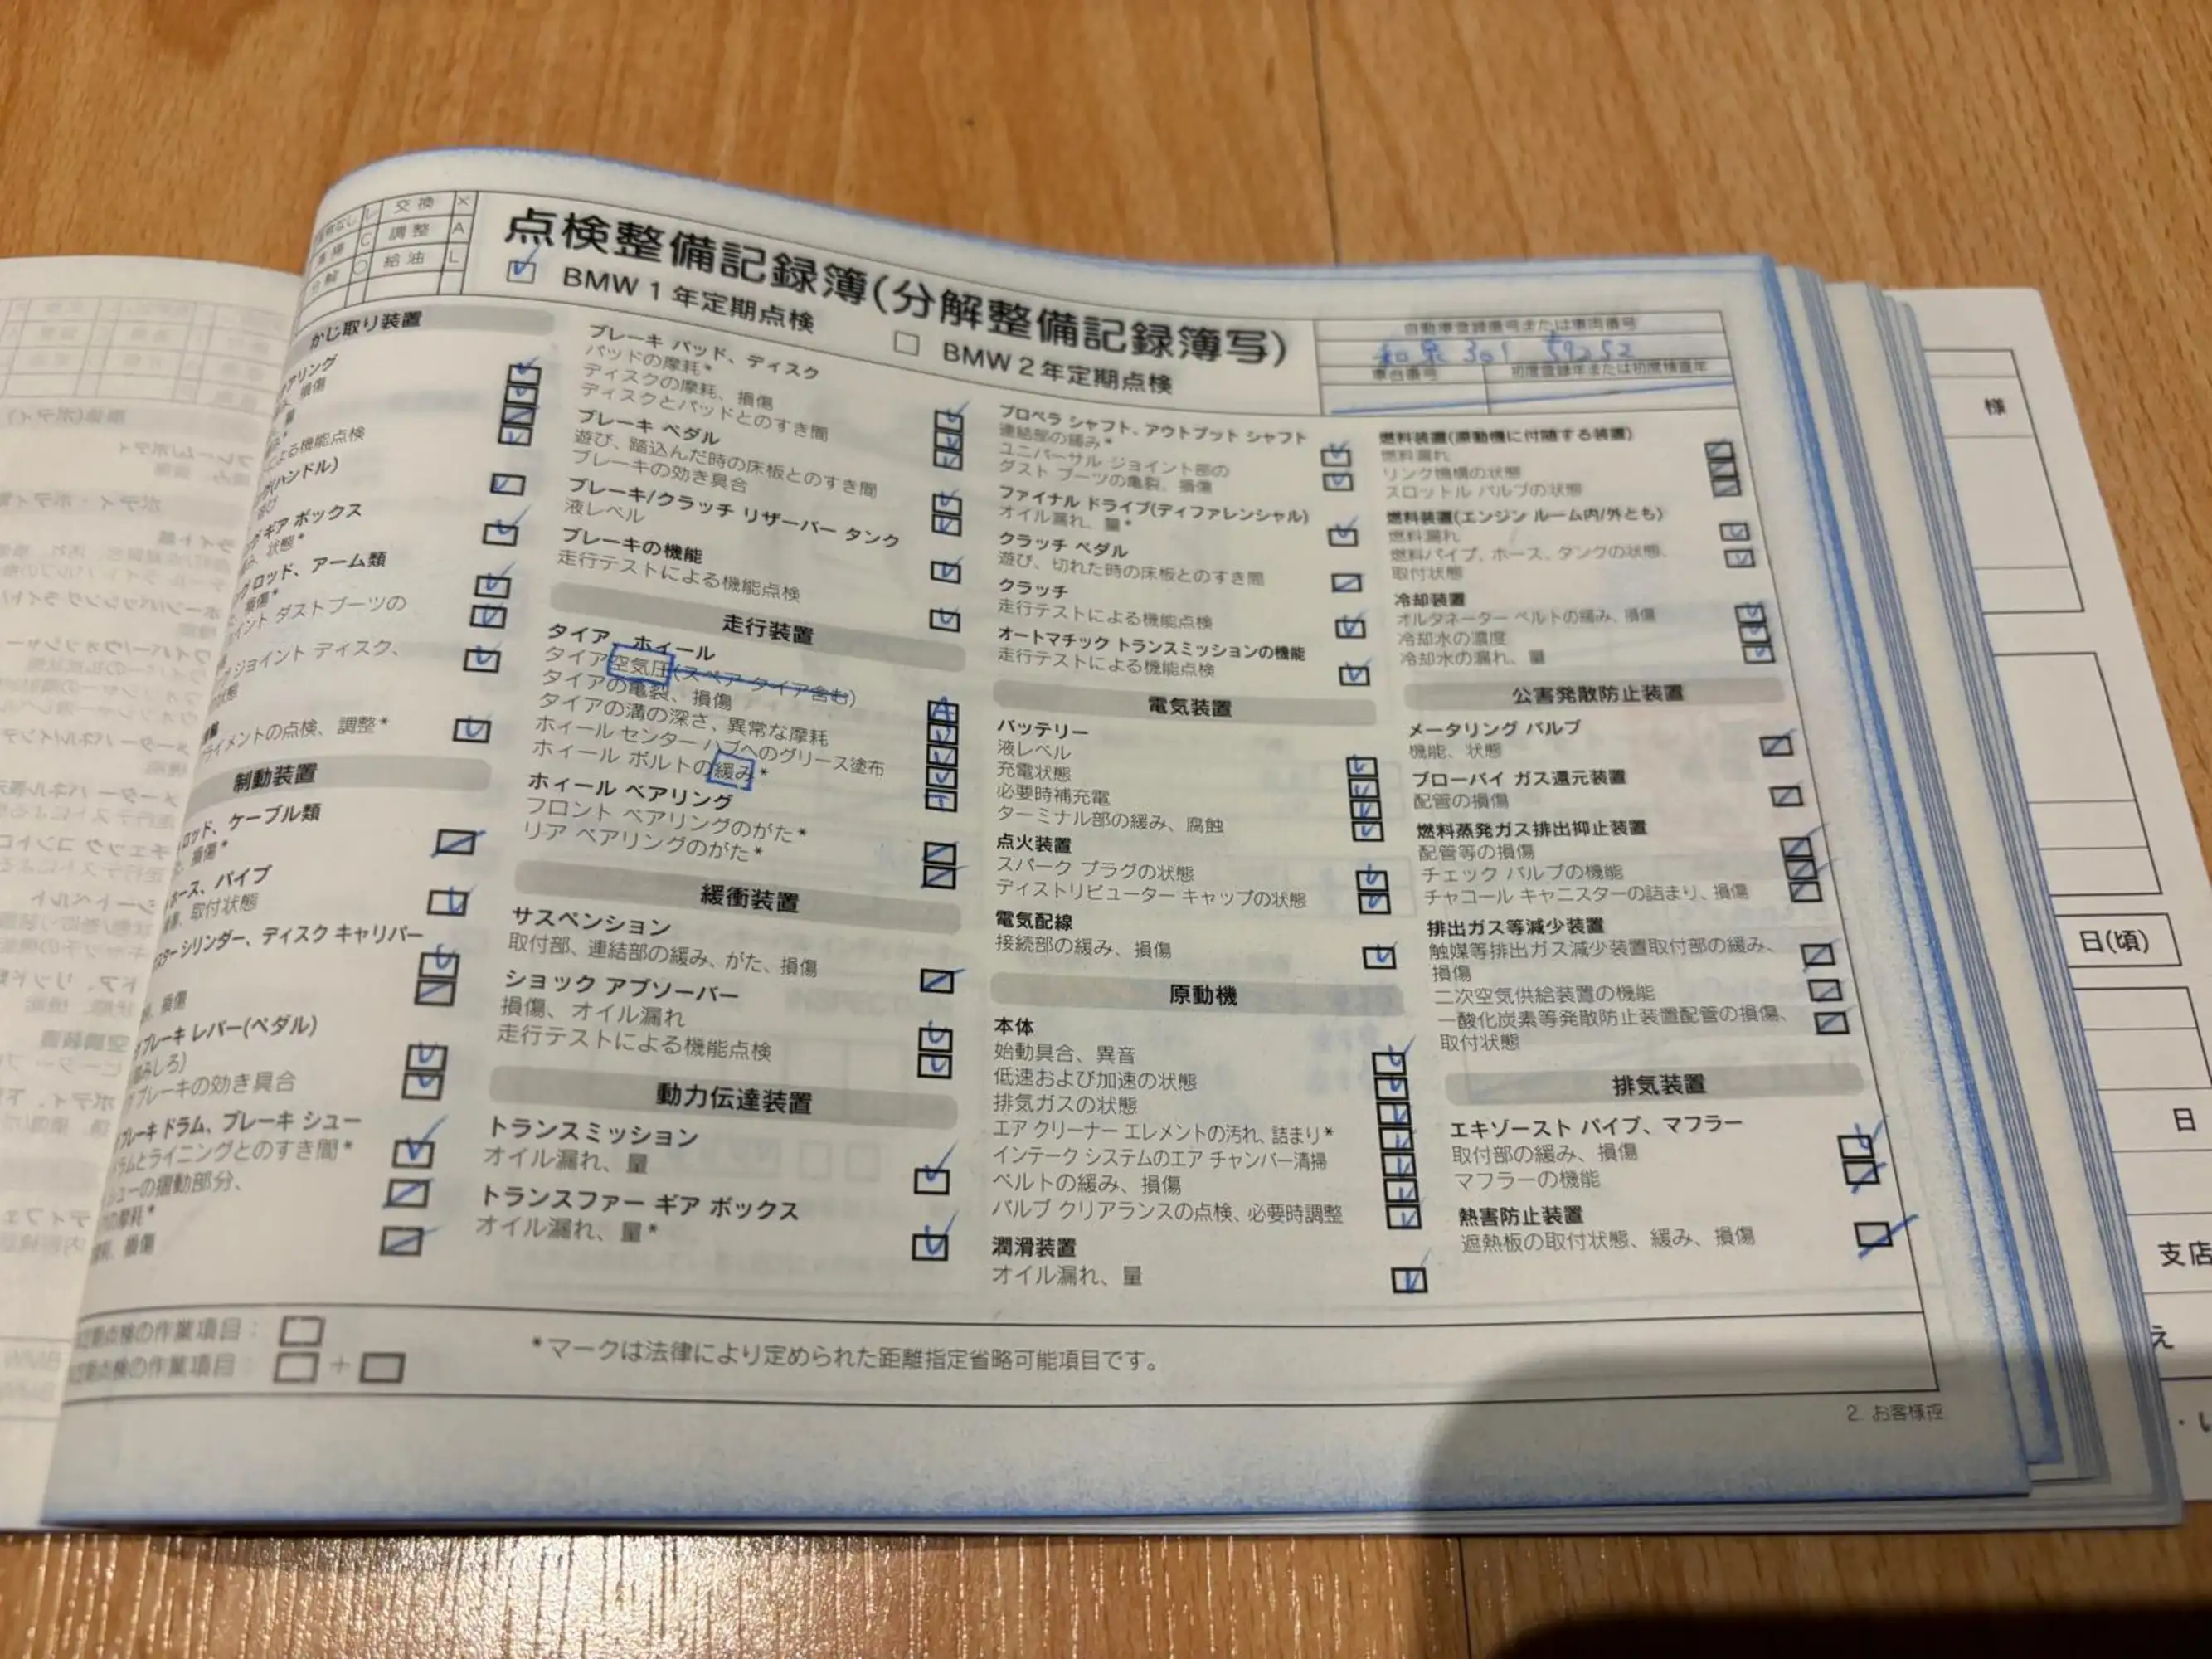 交換 ×
C 調整 A
給油 L
点検整備記録簿(分解整備記録簿写)
BMW 1年定期点検
BMW 2年定期点検
自動車登録番号または車両番号
和泉 301
車台番号
初度登録年または初度検査年
かじ取り装置
損傷
による機能点検
(ハンドル)
ギア ボックス
状態*
ロッド、アーム類
損傷*
ダストブーツの
ジョイント ディスク、
状態
ライメントの点検、調整*
制動装置
ロッド、ケーブル類
損傷*
ホース、パイプ
取付状態
シリンダー、ディスク キャリパー
損傷
ブレーキ レバー(ペダル)
ブレーキの効き具合
ブレーキ ドラム、ブレーキ シュー
ドラムとライニングとのすき間*
シューの摺動部分、
の摩耗*
損傷
ブレーキ パッド、ディスク
パッドの摩耗*
ディスクの摩耗、損傷
ディスクとパッドとのすき間
ブレーキ ペダル
遊び、踏込んだ時の床板とのすき間
ブレーキの効き具合
ブレーキ/クラッチ リザーバー タンク
液レベル
ブレーキの機能
走行テストによる機能点検
走行装置
タイア、ホイール
タイア空気圧(スペア タイア含む)
A
タイアの亀裂、損傷
タイアの溝の深さ、異常な摩耗
ホイール センター ハブへのグリース塗布
ホイール ボルトの緩み*
ホイール ベアリング
フロント ベアリングのがた*
リア ベアリングのがた*
緩衝装置
サスペンション
取付部、連結部の緩み、がた、損傷
ショック アブソーバー
損傷、オイル漏れ
走行テストによる機能点検
動力伝達装置
トランスミッション
オイル漏れ、量
トランスファー ギア ボックス
オイル漏れ、量*
プロペラ シャフト、アウトプット シャフト
連結部の緩み*
ユニバーサル ジョイント部の
ダスト ブーツの亀裂、損傷
ファイナル ドライブ(ディファレンシャル)
オイル漏れ、量*
クラッチ ペダル
遊び、切れた時の床板とのすき間
クラッチ
走行テストによる機能点検
オートマチック トランスミッションの機能
走行テストによる機能点検
電気装置
バッテリー
液レベル
充電状態
必要時補充電
ターミナル部の緩み、腐蝕
点火装置
スパーク プラグの状態
ディストリビューター キャップの状態
電気配線
接続部の緩み、損傷
原動機
本体
始動具合、異音
低速および加速の状態
排気ガスの状態
エア クリーナー エレメントの汚れ、詰まり*
インテーク システムのエア チャンバー清掃
ベルトの緩み、損傷
バルブ クリアランスの点検、必要時調整
潤滑装置
オイル漏れ、量
燃料装置(原動機に付随する装置)
燃料漏れ
リンク機構の状態
スロットル バルブの状態
燃料装置(エンジン ルーム内/外とも)
燃料漏れ
燃料パイプ、ホース、タンクの状態、
取付状態
冷却装置
オルタネーター ベルトの緩み、損傷
冷却水の濃度
冷却水の漏れ、量
公害発散防止装置
メータリング バルブ
機能、状態
ブローバイ ガス還元装置
配管の損傷
燃料蒸発ガス排出抑止装置
配管等の損傷
チェック バルブの機能
チャコール キャニスターの詰まり、損傷
排出ガス等減少装置
触媒等排出ガス減少装置取付部の緩み、
損傷
二次空気供給装置の機能
一酸化炭素等発散防止装置配管の損傷、
取付状態
排気装置
エキゾースト パイプ、マフラー
取付部の緩み、損傷
マフラーの機能
熱害防止装置
遮熱板の取付状態、緩み、損傷
点検の作業項目:
点検の作業項目: +
*マークは法律により定められた距離指定省略可能項目です。
2. お客様控
様
日(頃)
日
支店
え